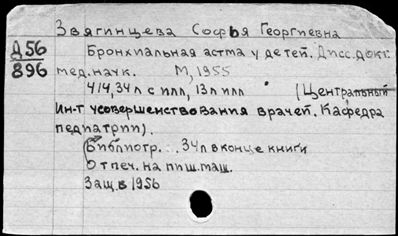 Звягинцева Софья Георгиевна
Д56
896
Бронхиальная астма у детей. Дисс. докт.
мед. наук. М, 1955
414, 34л с илл, 13л илл (Центральный
Ин-т усовершенствования врачей. Кафедра
педиатрии).
Библиогр. .. 34л в конце книги
Отпеч. на пиш. маш.
Защ. в 1956